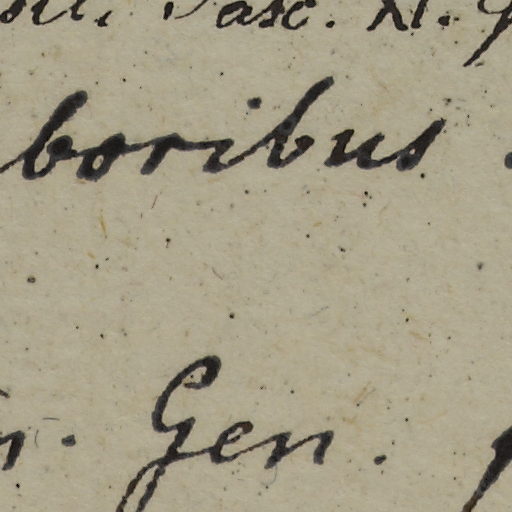 Fasc. XI.
boribus
n. Gen.